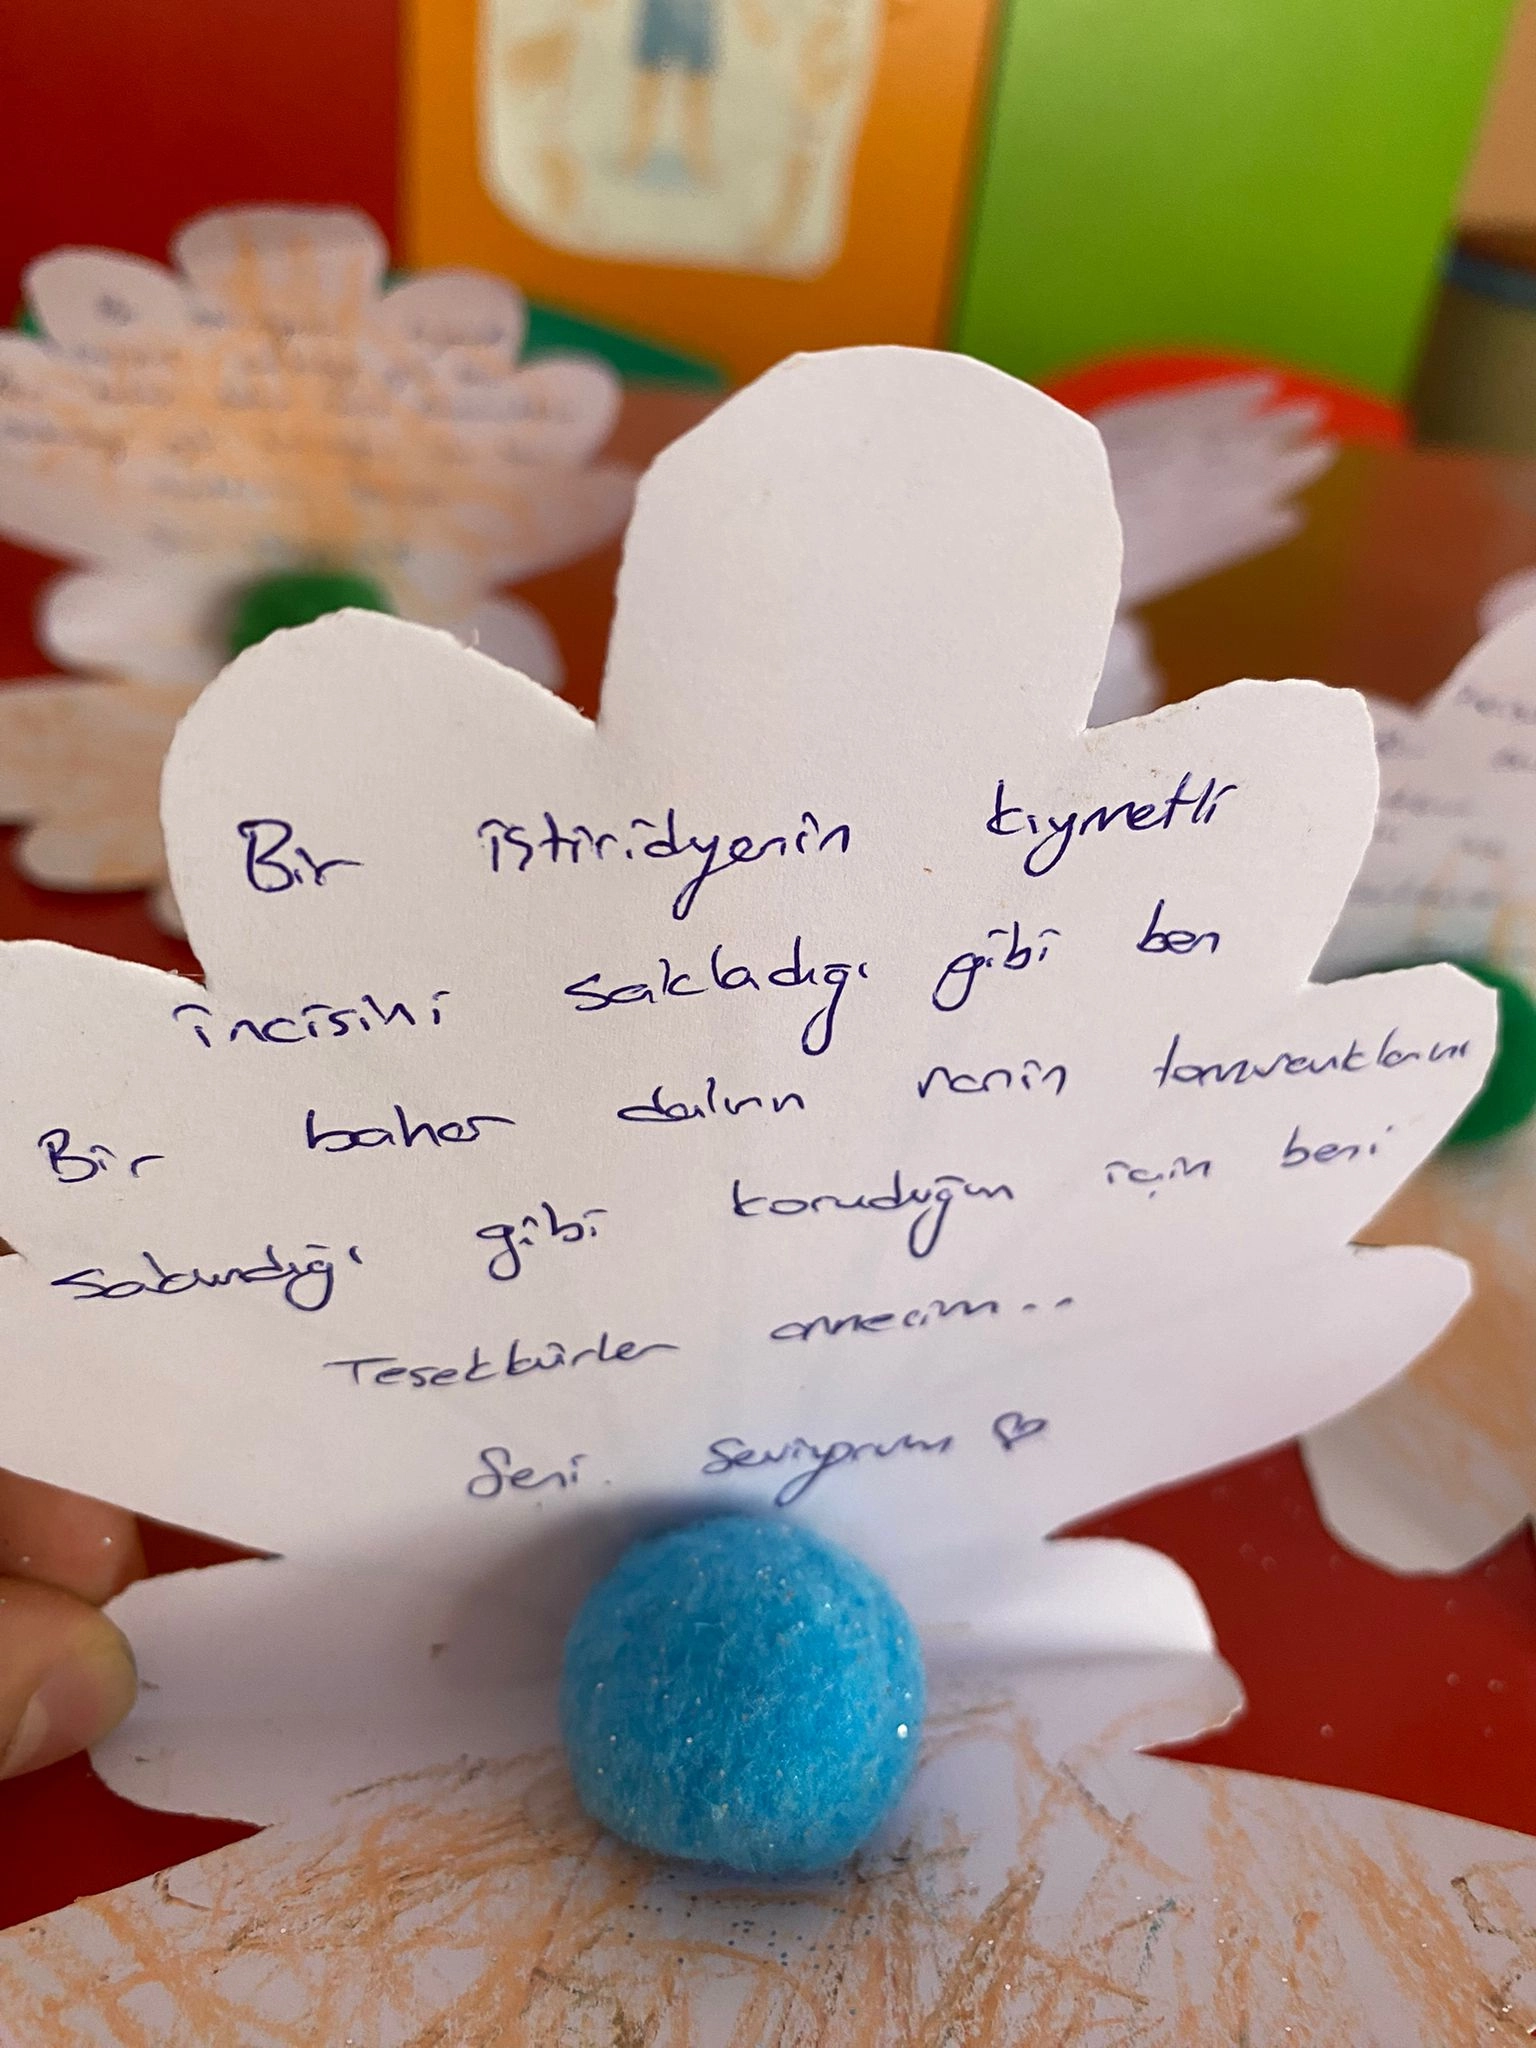 Bir istiridyenin kıymetli
incisini sakladığı gibi ben
Bir bahar dalının narin tomurcuklarını
sakındığı gibi koruduğun için beni
Teşekkürler annecim..
Seni Seviyorum ♡